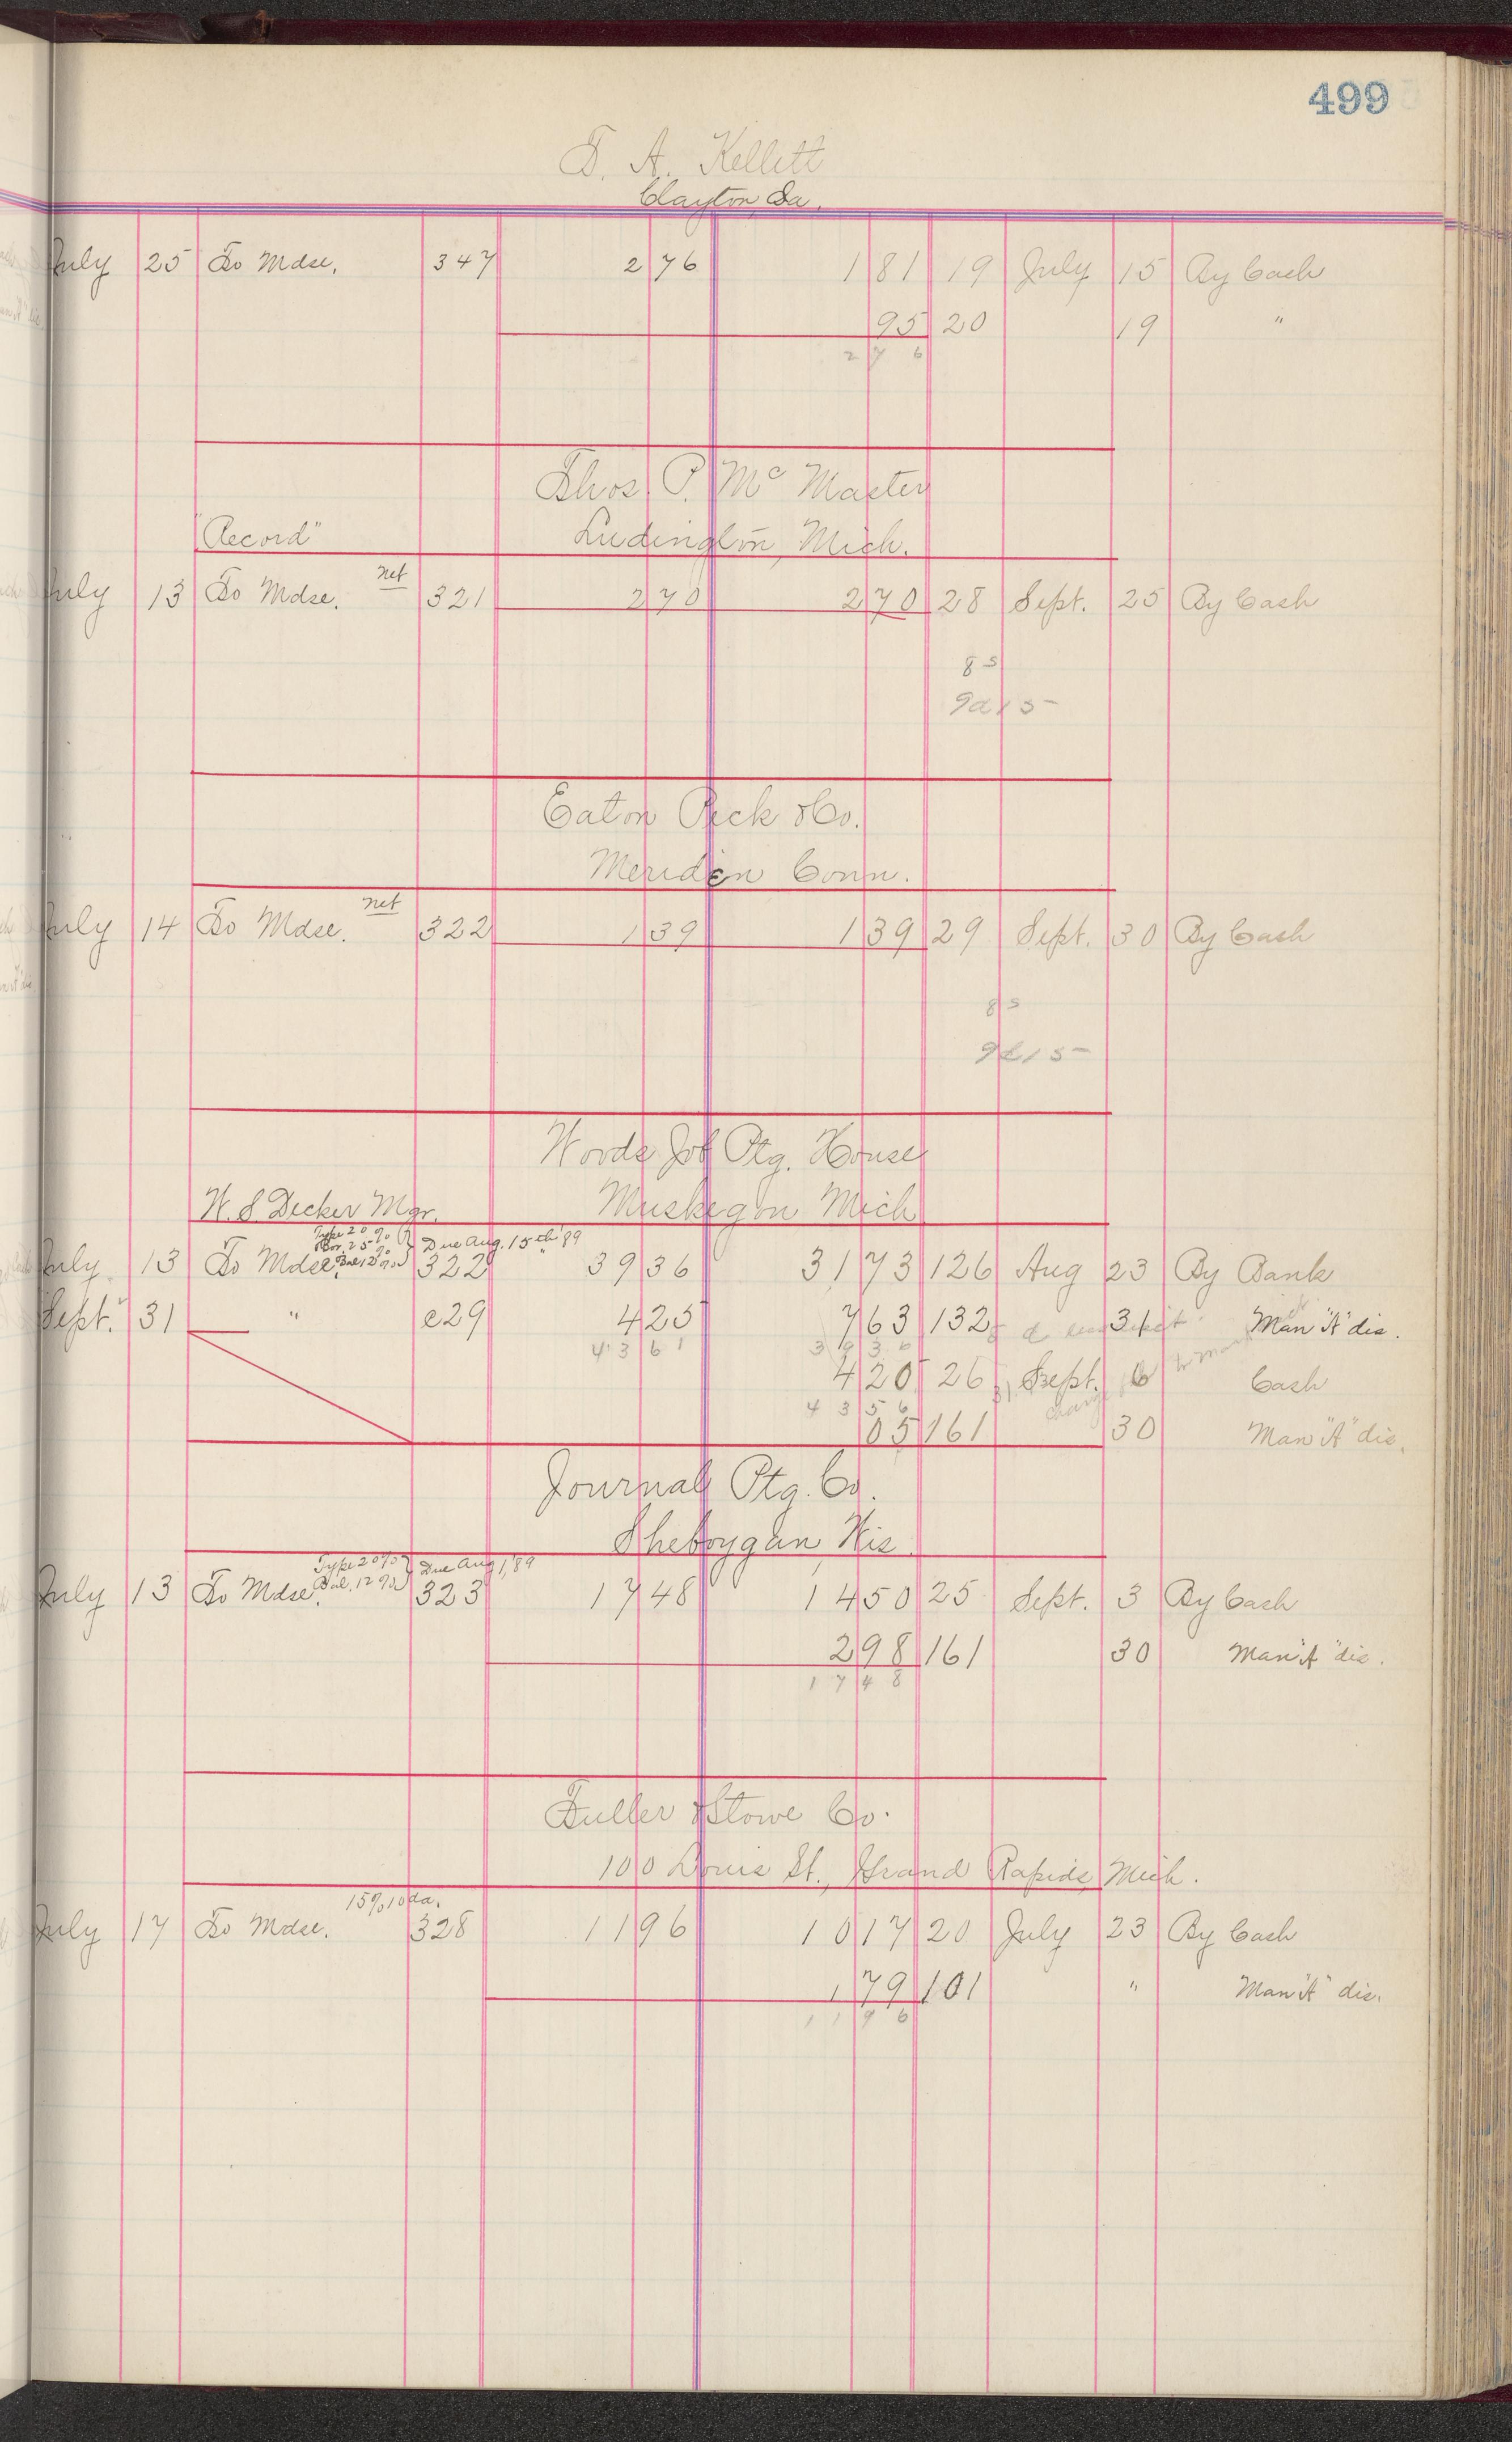 499
T. A. Kellett
Clayton, Ga.
July 25 To Mdse. 347 2 76 1 81 19 July 15 By Cash
95 20 19 "
2 7 6
Thos. P. Mc Master
"Record" Ludington, Mich.
July 13 To Mdse. net 321 2 70 2 70 28 Sept. 25 By Cash
8 5
Eaton Peck & Co.
Meriden Conn.
July 14 To Mdse. net 322 1 39 1 39 29 Sept. 30 By Cash
8 5
Woods Job Ptg. House
W. S. Decker Mgr. Muskegon Mich
Type 20 % Due Aug. 15th '89
Bor. 25 % "
July 13 To Mdse. Bal. 12 % 322 39 36 31 73 126 Aug 23 By Bank
Sept. 31 " e29 4 25 7 63 132 31 Man "A" dis.
43 61 39 36
4 20 26 Sept. 6 Cash
43 56
05 161 30 Man "A" dis.
Journal Ptg. Co.
Sheboygan Wis.
Type 20% Due Aug 1, '89
July 13 To Mdse. Bal. 12 % 323 17 48 14 50 25 Sept. 3 By Cash
2 98 161 30 Man "A" dis.
17 48
Fuller & Stowe Co.
100 Louis St., Grand Rapids, Mich.
15% 10 da.
July 17 To Mdse. 328 11 96 10 17 20 July 23 By Cash
1 79 101 " Man "A" dis.
11 96